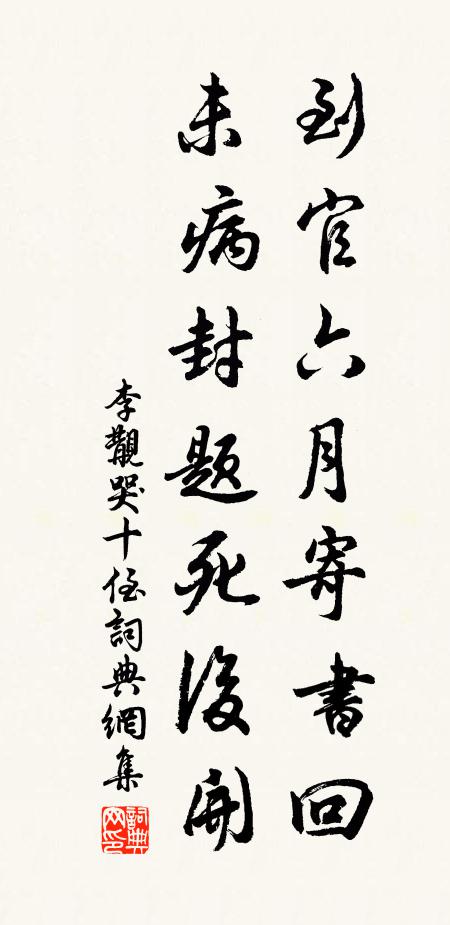 到官六月寄書回
未病封題死後開
李覯哭十侄詞典網集
詞典網印